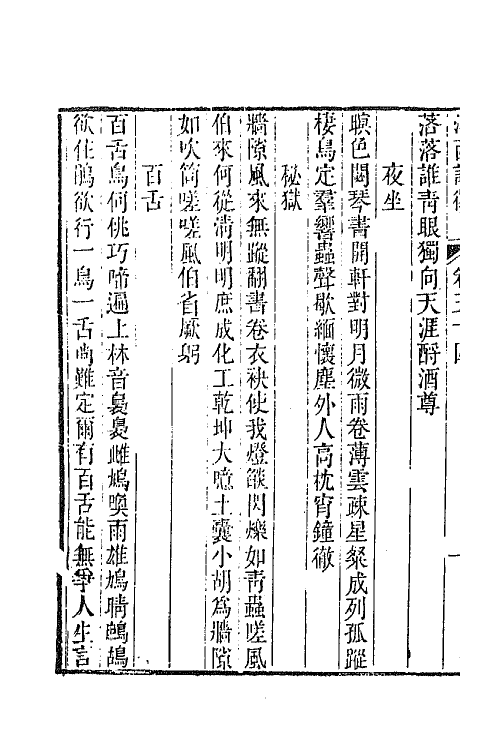 落落誰靑眼獨向天涯酹酒尊
夜坐
暝色閉琴書開軒對明月微雨卷薄雲疎星粲成列孤蹤
棲鳥定羣響蟲聲歇緬懷塵外人高枕宵鐘徹
秘獄
牆隙風來無蹤翻書卷衣袂使我燈燄閃爍如靑蟲嗟風
伯來何從淸明明庶成化工乾坤大噫土囊小胡爲牆隙
如吹筒嗟嗟風伯省厥躬
百舌
百舌鳥何佻巧啼遍上林音裊裊雌鳩喚雨雄鳩晴鷓鴣
欲住鵑欲行一鳥一舌尚難定爾有百舌能無爭人生言